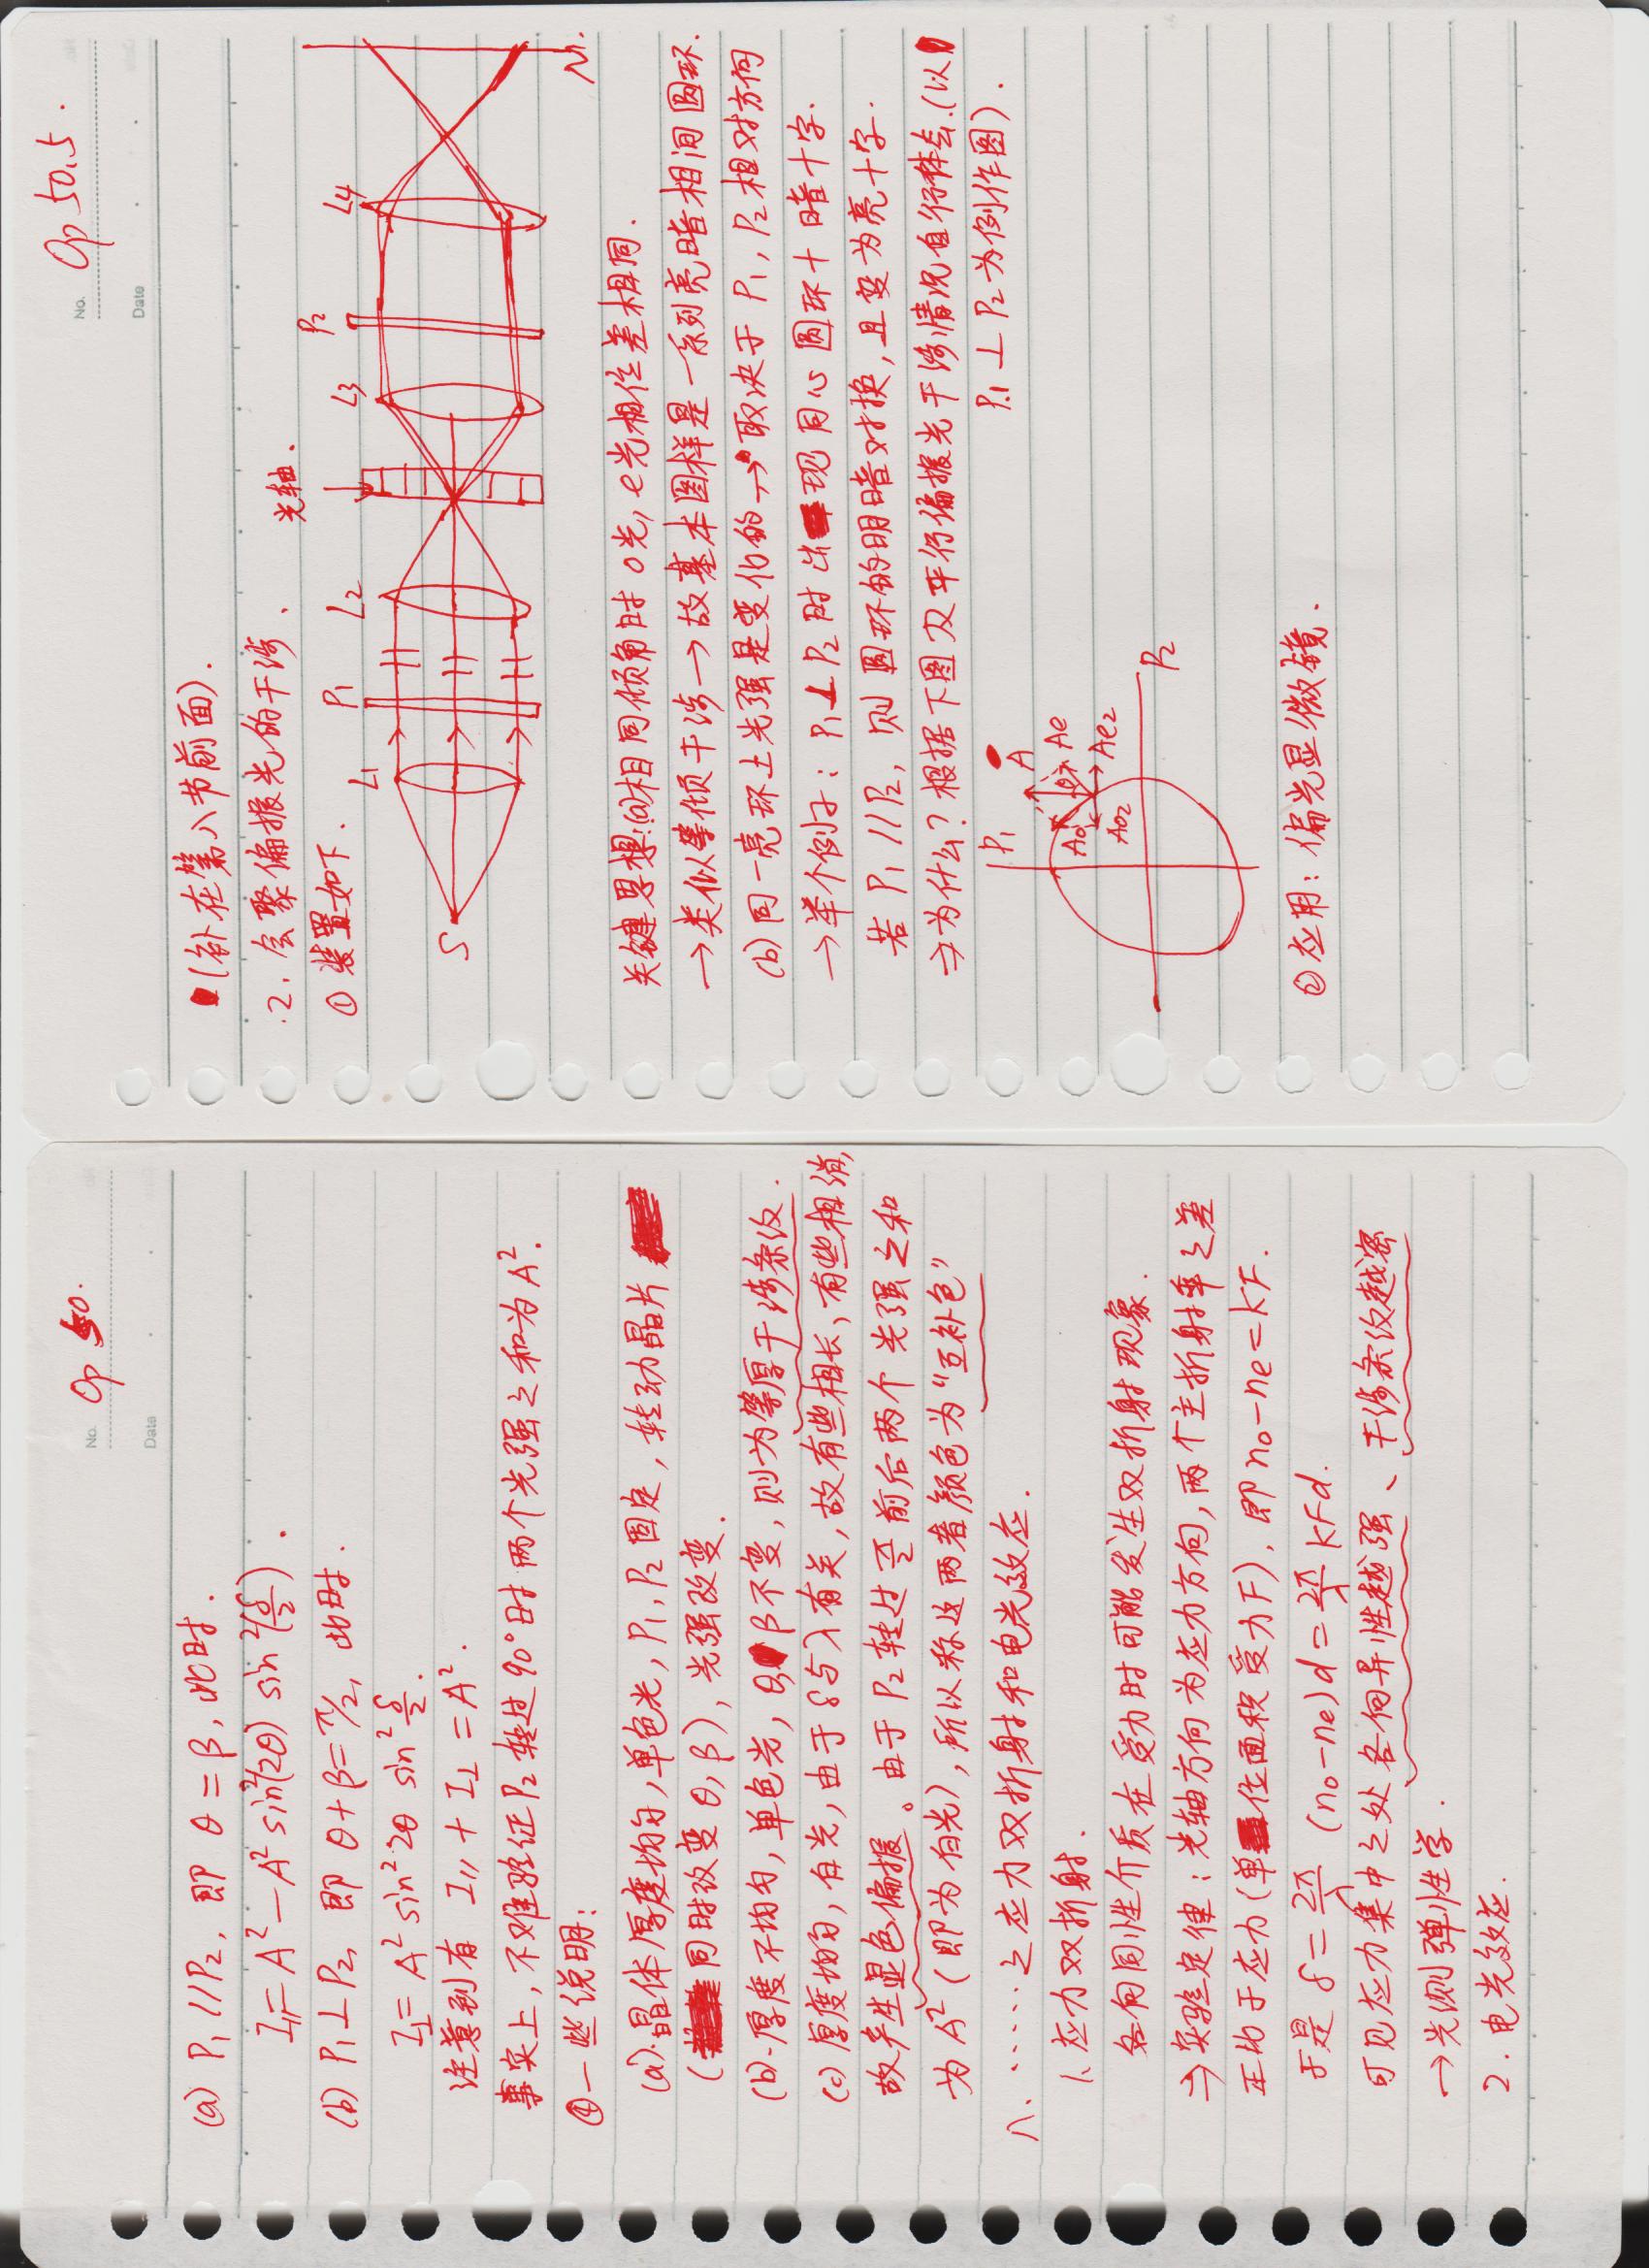 No. Op 50.
Date
(a) P₁ // P₂, 即 θ = β, 此时.
I∥ = A² − A² sin²(2θ) sin²(δ/2).
(b) P₁ ⊥ P₂, 即 θ + β = π/2, 此时.
I⊥ = A² sin² 2θ sin² δ/2.
注意到有 I∥ + I⊥ = A².
事实上, 不难验证 P₂ 转过 90° 时两个光强之和为 A².
④ 一些说明:
(a). 晶体厚度均匀, 单色光, P₁, P₂ 固定, 转动晶片
(同时改变 θ, β), 光强改变.
(b). 厚度不均匀, 单色光, θ, β 不变, 则为等厚干涉条纹.
(c) 厚度均匀, 白光, 由于 δ 与 λ 有关, 故有些相长, 有些相消,
故产生显色偏振。由于 P₂ 转过 π/2 前后两个光强之和
为 A² (即为白光), 所以称这两者颜色为“互补色”
八、……之应力双折射和电光效应.
1、应力双折射.
各向同性介质在受力时可能发生双折射现象.
→ 实验定律: 光轴方向为应力方向, 两个主折射率之差
正比于应力 (单位面积受力 F), 即 no − ne = kF.
于是 δ = 2π/λ (no − ne) d = 2π/λ kFd.
可见应力集中之处各向异性越强、干涉条纹越密
→ 光测弹性学.
2. 电光效应.
No. Op 50.5.
Date
(补在第八节前面).
2. 会聚偏振光的干涉.
① 装置如下.
光轴.
S L₁ P₁ L₂ L₃ P₂ L₄ M.
关键思想: (a) 相同倾角时 o光, e光相位差相同.
→ 类似等倾干涉 → 故基本图样是一系列亮暗相间圆环.
(b) 同一亮环上光强是变化的 → 取决于 P₁, P₂ 相对方向
→ 举个例子: P₁ ⊥ P₂ 时出现同心圆环 + 暗十字.
若 P₁ // P₂, 则圆环的明暗对换, 且变为亮十字.
→ 为什么? 根据下图及平行偏振光干涉情况自行体会. (以
P₁ ⊥ P₂ 为例作图).
P₁ A
Ao θ Ae
Ao₂ Ae₂
P₂
② 应用: 偏光显微镜.